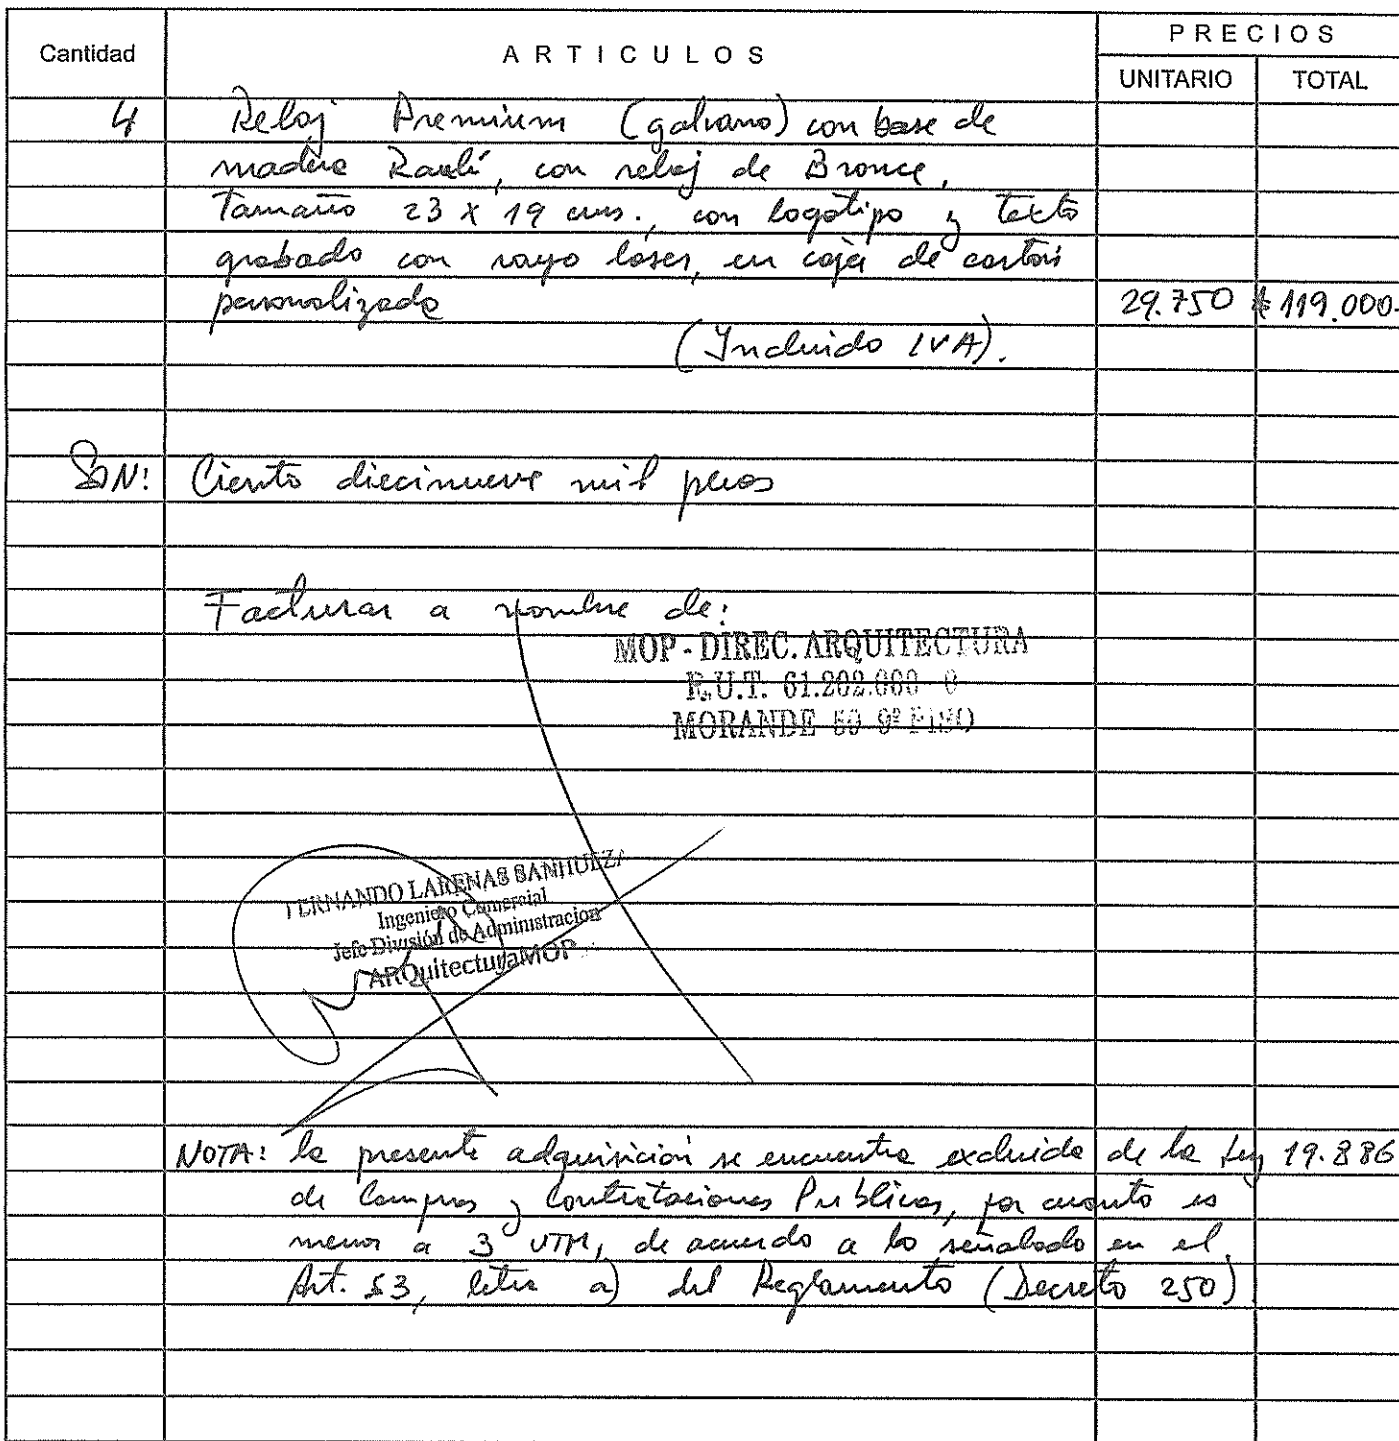 Cantidad ARTICULOS PRECIOS
UNITARIO TOTAL
4 Reloj Premium (galvano) con base de
madera Raulí, con reloj de Bronce,
Tamaño 23 x 19 cms., con logotipo y texto
grabado con rayo láser, en caja de cartón
personalizada 29.750 $ 119.000.-
(Incluido IVA).
SON: Ciento diecinueve mil pesos
Facturar a nombre de:
MOP - DIREC. ARQUITECTURA
R.U.T. 61.202.000 - 0
MORANDE 59 9º PISO
FERNANDO LARENAS SANHUEZA
Ingeniero Comercial
Jefe División de Administracion
ARQuitecturaMOP
NOTA: la presente adquisición se encuentra excluida de la Ley 19.886
de Compras y Contrataciones Públicas, por cuanto es
menor a 3 UTM, de acuerdo a lo señalado en el
Art. 53, letra a) del Reglamento (Decreto 250)